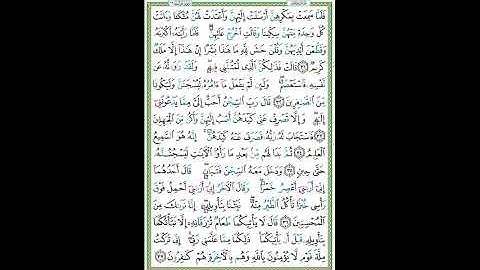 فَلَمَّا سَمِعَتْ بِمَكْرِهِنَّ أَرْسَلَتْ إِلَيْهِنَّ وَأَعْتَدَتْ لَهُنَّ مُتَّكَـًٔا وَءَاتَتْ
كُلَّ وَٰحِدَةٍ مِّنْهُنَّ سِكِّينًا وَقَالَتِ ٱخْرُجْ عَلَيْهِنَّ ۖ فَلَمَّا رَأَيْنَهُۥٓ أَكْبَرْنَهُۥ
وَقَطَّعْنَ أَيْدِيَهُنَّ وَقُلْنَ حَٰشَ لِلَّهِ مَا هَٰذَا بَشَرًا إِنْ هَٰذَآ إِلَّا مَلَكٌ
كَرِيمٌ ﴿٣١﴾ قَالَتْ فَذَٰلِكُنَّ ٱلَّذِى لُمْتُنَّنِى فِيهِ ۖ وَلَقَدْ رَٰوَدتُّهُۥ عَن
نَّفْسِهِۦ فَٱسْتَعْصَمَ ۖ وَلَئِن لَّمْ يَفْعَلْ مَآ ءَامُرُهُۥ لَيُسْجَنَنَّ وَلَيَكُونًا
مِّنَ ٱلصَّٰغِرِينَ ﴿٣٢﴾ قَالَ رَبِّ ٱلسِّجْنُ أَحَبُّ إِلَىَّ مِمَّا يَدْعُونَنِىٓ
إِلَيْهِ ۖ وَإِلَّا تَصْرِفْ عَنِّى كَيْدَهُنَّ أَصْبُ إِلَيْهِنَّ وَأَكُن مِّنَ ٱلْجَٰهِلِينَ
﴿٣٣﴾ فَٱسْتَجَابَ لَهُۥ رَبُّهُۥ فَصَرَفَ عَنْهُ كَيْدَهُنَّ ۚ إِنَّهُۥ هُوَ ٱلسَّمِيعُ
ٱلْعَلِيمُ ﴿٣٤﴾ ثُمَّ بَدَا لَهُم مِّنۢ بَعْدِ مَا رَأَوُا۟ ٱلْـَٔايَٰتِ لَيَسْجُنُنَّهُۥ
حَتَّىٰ حِينٍ ﴿٣٥﴾ وَدَخَلَ مَعَهُ ٱلسِّجْنَ فَتَيَانِ ۖ قَالَ أَحَدُهُمَآ
إِنِّىٓ أَرَىٰنِىٓ أَعْصِرُ خَمْرًا ۖ وَقَالَ ٱلْـَٔاخَرُ إِنِّىٓ أَرَىٰنِىٓ أَحْمِلُ فَوْقَ
رَأْسِى خُبْزًا تَأْكُلُ ٱلطَّيْرُ مِنْهُ ۖ نَبِّئْنَا بِتَأْوِيلِهِۦٓ ۖ إِنَّا نَرَىٰكَ مِنَ
ٱلْمُحْسِنِينَ ﴿٣٦﴾ قَالَ لَا يَأْتِيكُمَا طَعَامٌ تُرْزَقَانِهِۦٓ إِلَّا نَبَّأْتُكُمَا
بِتَأْوِيلِهِۦ قَبْلَ أَن يَأْتِيَكُمَا ۚ ذَٰلِكُمَا مِمَّا عَلَّمَنِى رَبِّىٓ ۚ إِنِّى تَرَكْتُ
مِلَّةَ قَوْمٍ لَّا يُؤْمِنُونَ بِٱللَّهِ وَهُم بِٱلْـَٔاخِرَةِ هُمْ كَٰفِرُونَ ﴿٣٧﴾